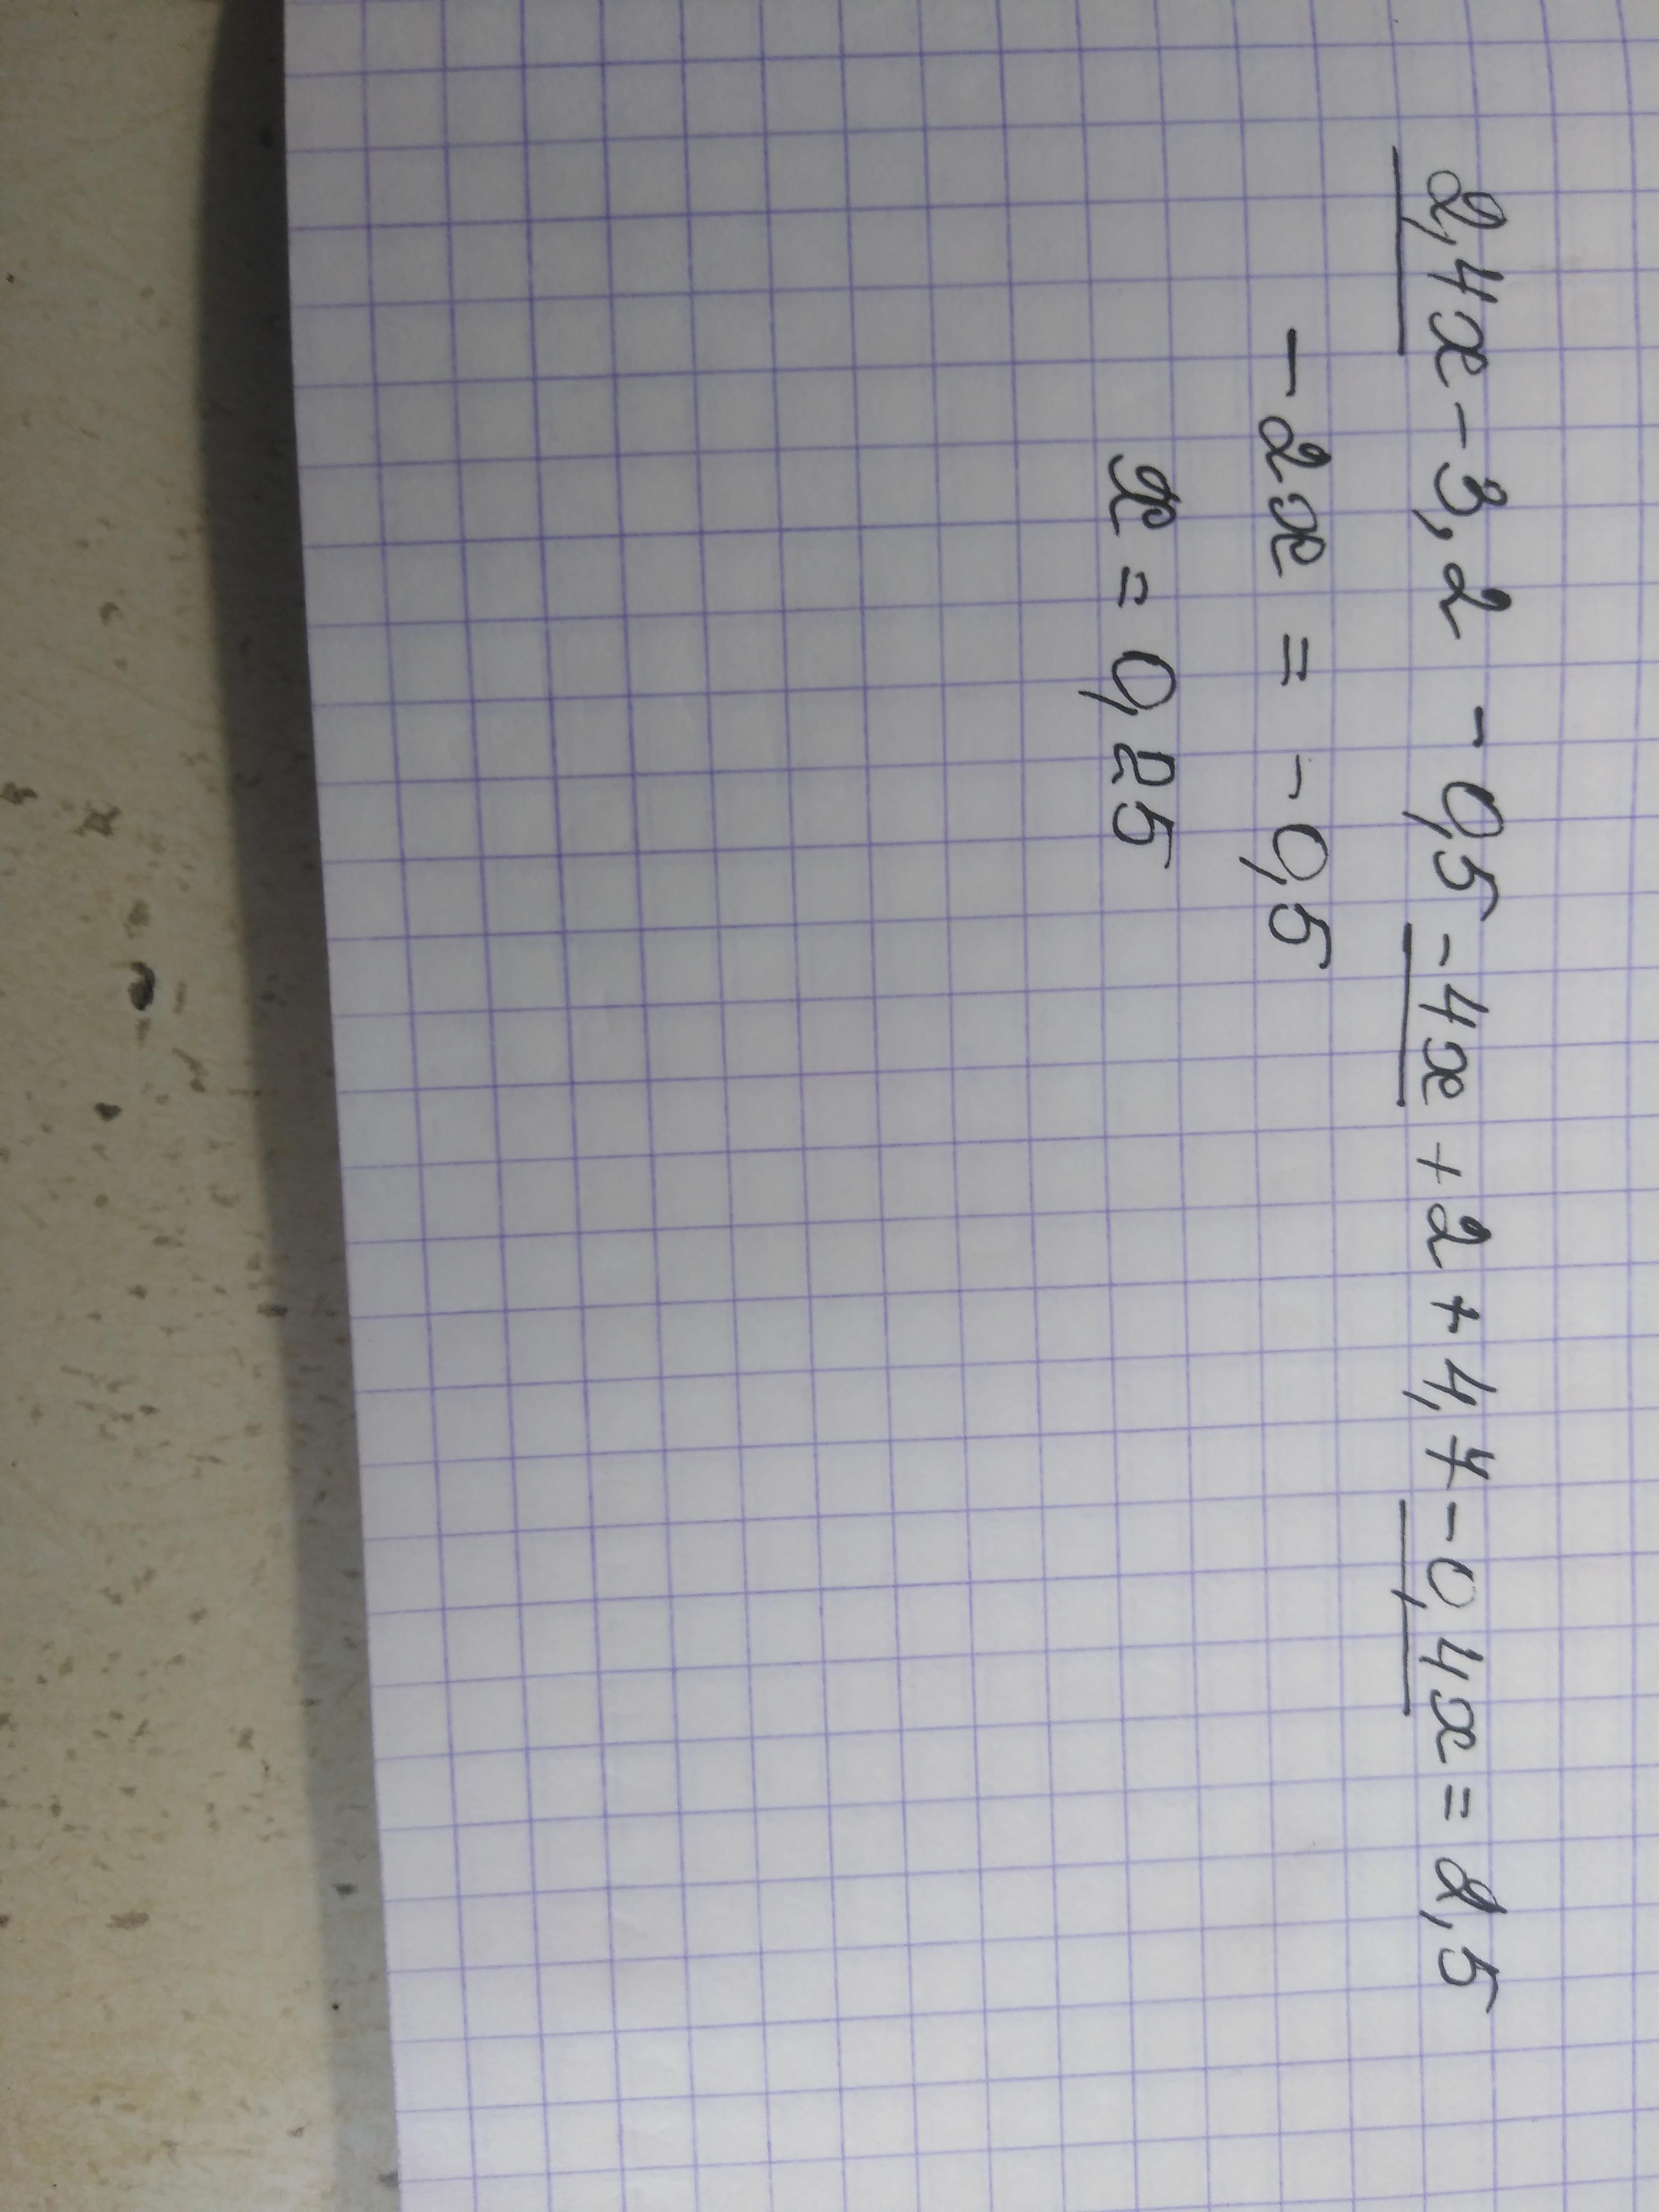 2,4x - 3,2 - 0,5 - 4x + 2 + 4,7 - 0,4x = 2,5
- 2x = - 0,5
x = 0,25